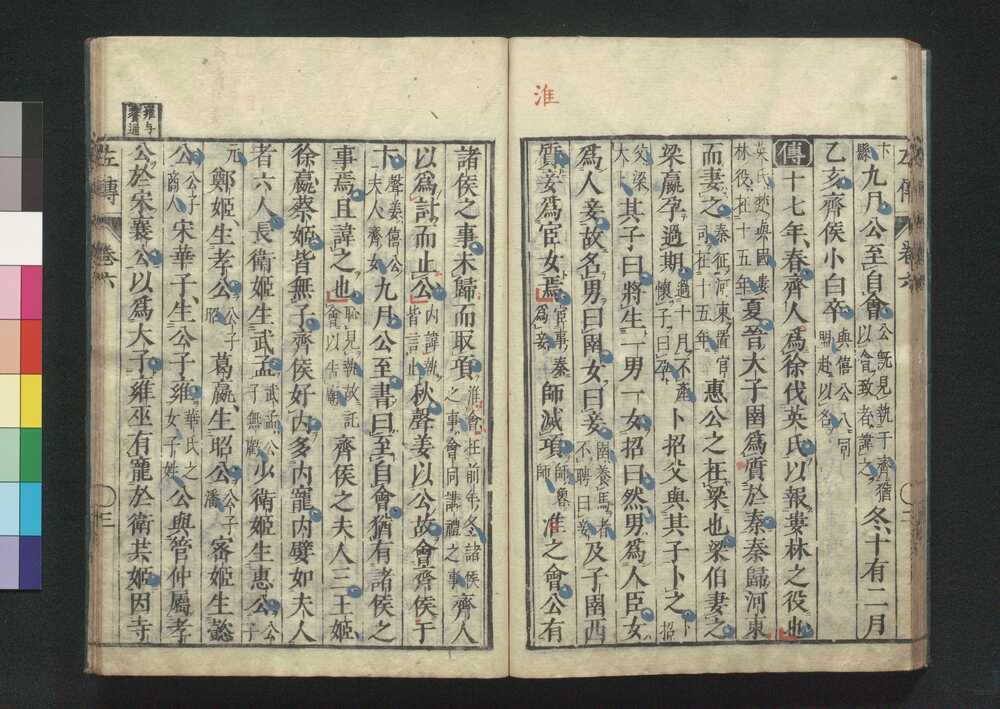 淮
卞縣九月公至自會公既見執于齊猶以會致者諱之冬十有二月
乙亥齊侯小白卒與僖公八同盟赴以名
傳十七年春齊人爲徐伐英氏以報婁林之役也
英氏楚與國婁林役在十五年夏晉大子圉爲質於秦秦歸河東
而妻之秦征河東置官司在十五年惠公之在梁也梁伯妻之
梁嬴孕過期過十月不產懷子曰孕卜招父與其子卜之卜招
父梁大卜其子曰將生一男一女招曰然男爲人臣女
爲人妾故名男曰圉女曰妾圉養馬者不聘曰妾及子圉西
質妾爲宦女焉宦事秦爲妾師滅項師魯師淮之會公有
諸侯之事未歸而取項淮會在前年冬諸侯之事會同講禮之事齊人
以爲討而止公內諱執皆言止秋聲姜以公故會齊侯于
卞聲姜僖公夫人齊女九月公至書曰至自會猶有諸侯之
事焉且諱之也恥見執故託會以告廟齊侯之夫人三王姬
徐嬴蔡姬皆無子齊侯好內多內寵內嬖如夫人
者六人長衛姬生武孟武孟公子無虧少衛姬生惠公公子
元鄭姬生孝公公子昭葛嬴生昭公公子潘密姬生懿
公公子商人宋華子生公子雍華氏之女子姓公與管仲屬孝
公於宋襄公以爲大子雍巫有寵於衛共姬因寺
雍与
通
左傳
卷六
三